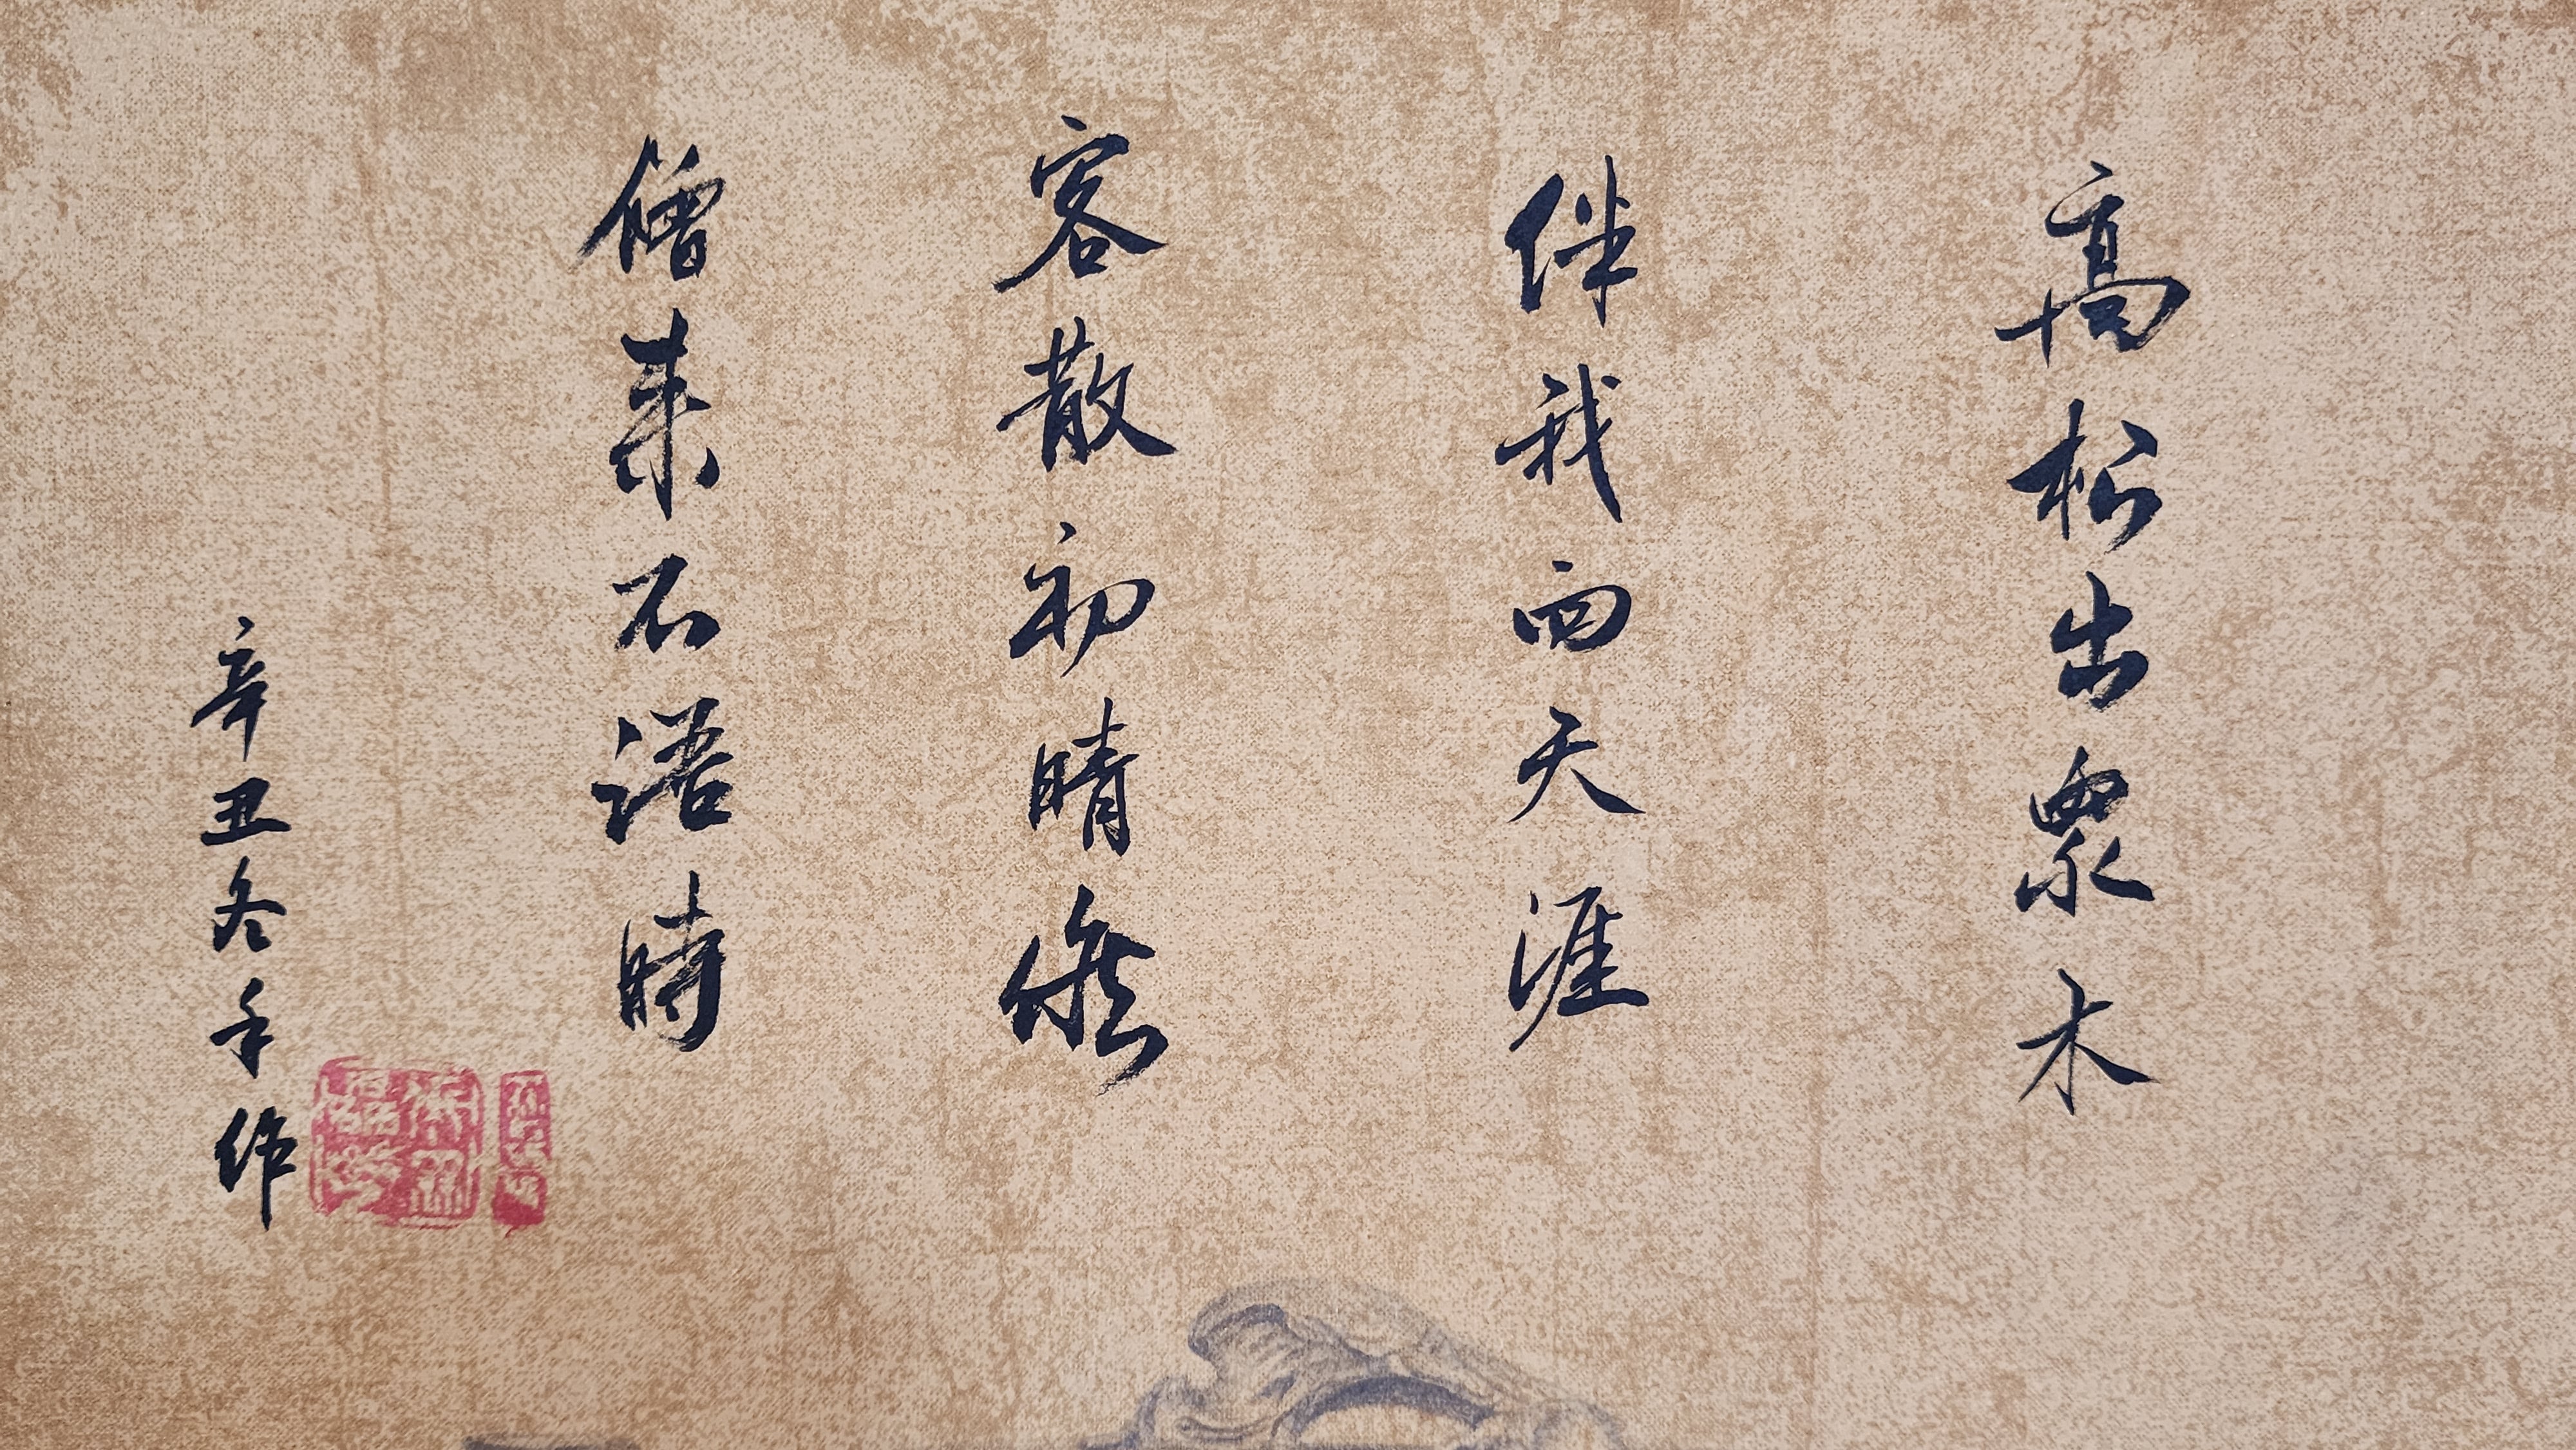 高松出衆木
伴我向天涯
客散初晴候
僧来不語時
辛丑冬手作